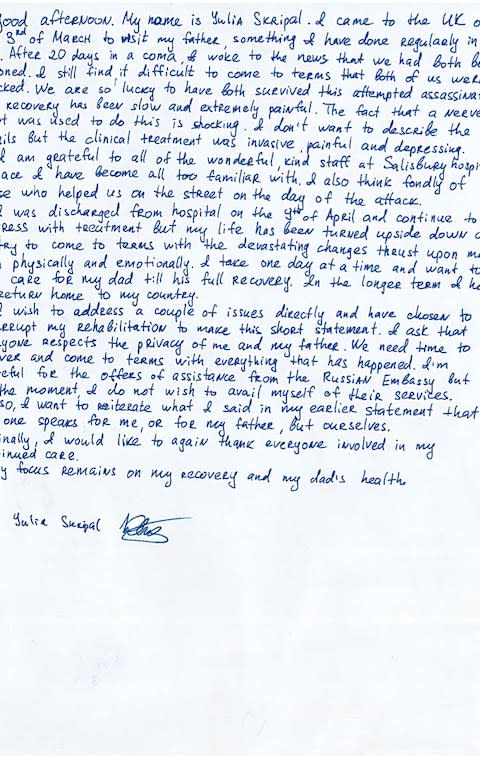 good afternoon. My name is Yulia Skripal. I came to the UK o
3rd of March to visit my father, something I have done regularly in
. After 20 days in a coma, I woke to the news that we had both be
oned. I still find it difficult to come to terms that both of us wer
cked. We are so lucky to have both survived this attempted assassinat
recovery has been slow and extremely painful. The fact that a nerve
t was used to do this is shocking. I don't want to describe the
ils but the clinical treatment was invasive, painful and depressing.
I am grateful to all of the wonderful, kind staff at Salisbury hospit
ace I have become all too familiar with. I also think fondly of
se who helped us on the street on the day of the attack.
I was discharged from hospital on the 9th of April and continue to
ress with treatment but my life has been turned upside down a
try to come to terms with the devastating changes thrust upon me
physically and emotionally. I take one day at a time and want to
care for my dad till his full recovery. In the longer term I ho
return home to my country.
I wish to address a couple of issues directly and have chosen to
rrupt my rehabilitation to make this short statement. I ask that
yone respects the privacy of me and my father. We need time to
ver and come to terms with everything that has happened. I'm
eful for the offers of assistance from the Russian Embassy but
the moment, I do not wish to avail myself of their services.
so, I want to reiterate what I said in my earlier statement that
one speaks for me, or for my father, but ourselves.
inally, I would like to again thank everyone involved in my
inued care.
y focus remains on my recovery and my dad's health.
Yulia Skripal